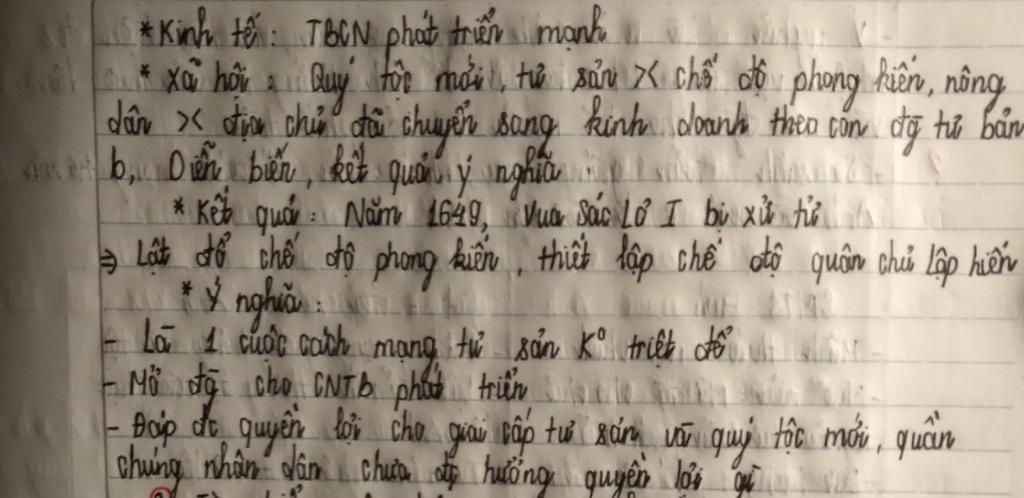 * Kinh tế : TBCN phát triển mạnh
* Xã hội : Quý tộc mới, tư sản >< chế độ phong kiến, nông
dân >< địa chủ đã chuyển sang kinh doanh theo con đg̃ tư bản
b, Diễn biến, kết quả, ý nghĩa
* Kết quả : Năm 1649, Vua Sác Lơ I bị xử tử
⇒ Lật đổ chế độ phong kiến, thiết lập chế độ quân chủ lập hiến
* Ý nghĩa :
- Là 1 cuộc cách mạng tư sản K° triệt để
- Mở đg̃ cho CNTb phát triển
- Đáp đc quyền lợi cho giai cấp tư sản và quý tộc mới, quần
chúng nhân dân chưa đc hưởng quyền lợi gì